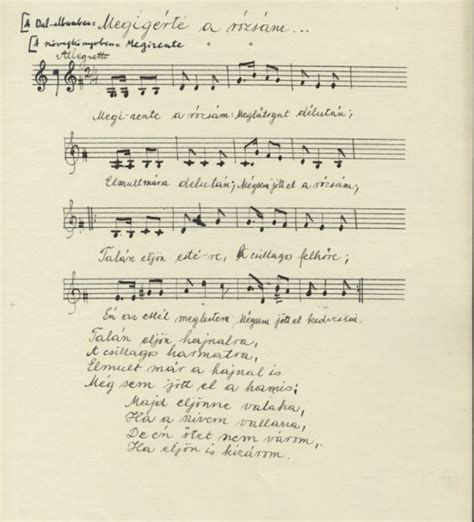 [A Dal-albumban= Megigérte a rózsám...
[A növegkönyvben= Megizente " " "
Allegretto
2/4
Megi-zente a rózsám: Meglátogat délután;
Elmult mára délután; Mégsem jött el a rózsám;
Talán eljön esté-re, A csillagos felhőre;
Én az estét meglestem Mégsem jött el kedvesem.
Talán eljön hajnalra,
A csillagos harmatra,
Elmult már a hajnal is
Még sem jött el a hamis;
Majd eljönne valaha,
Ha a szivem vallana,
De én őtet nem várom,
Ha eljön is kizárom.